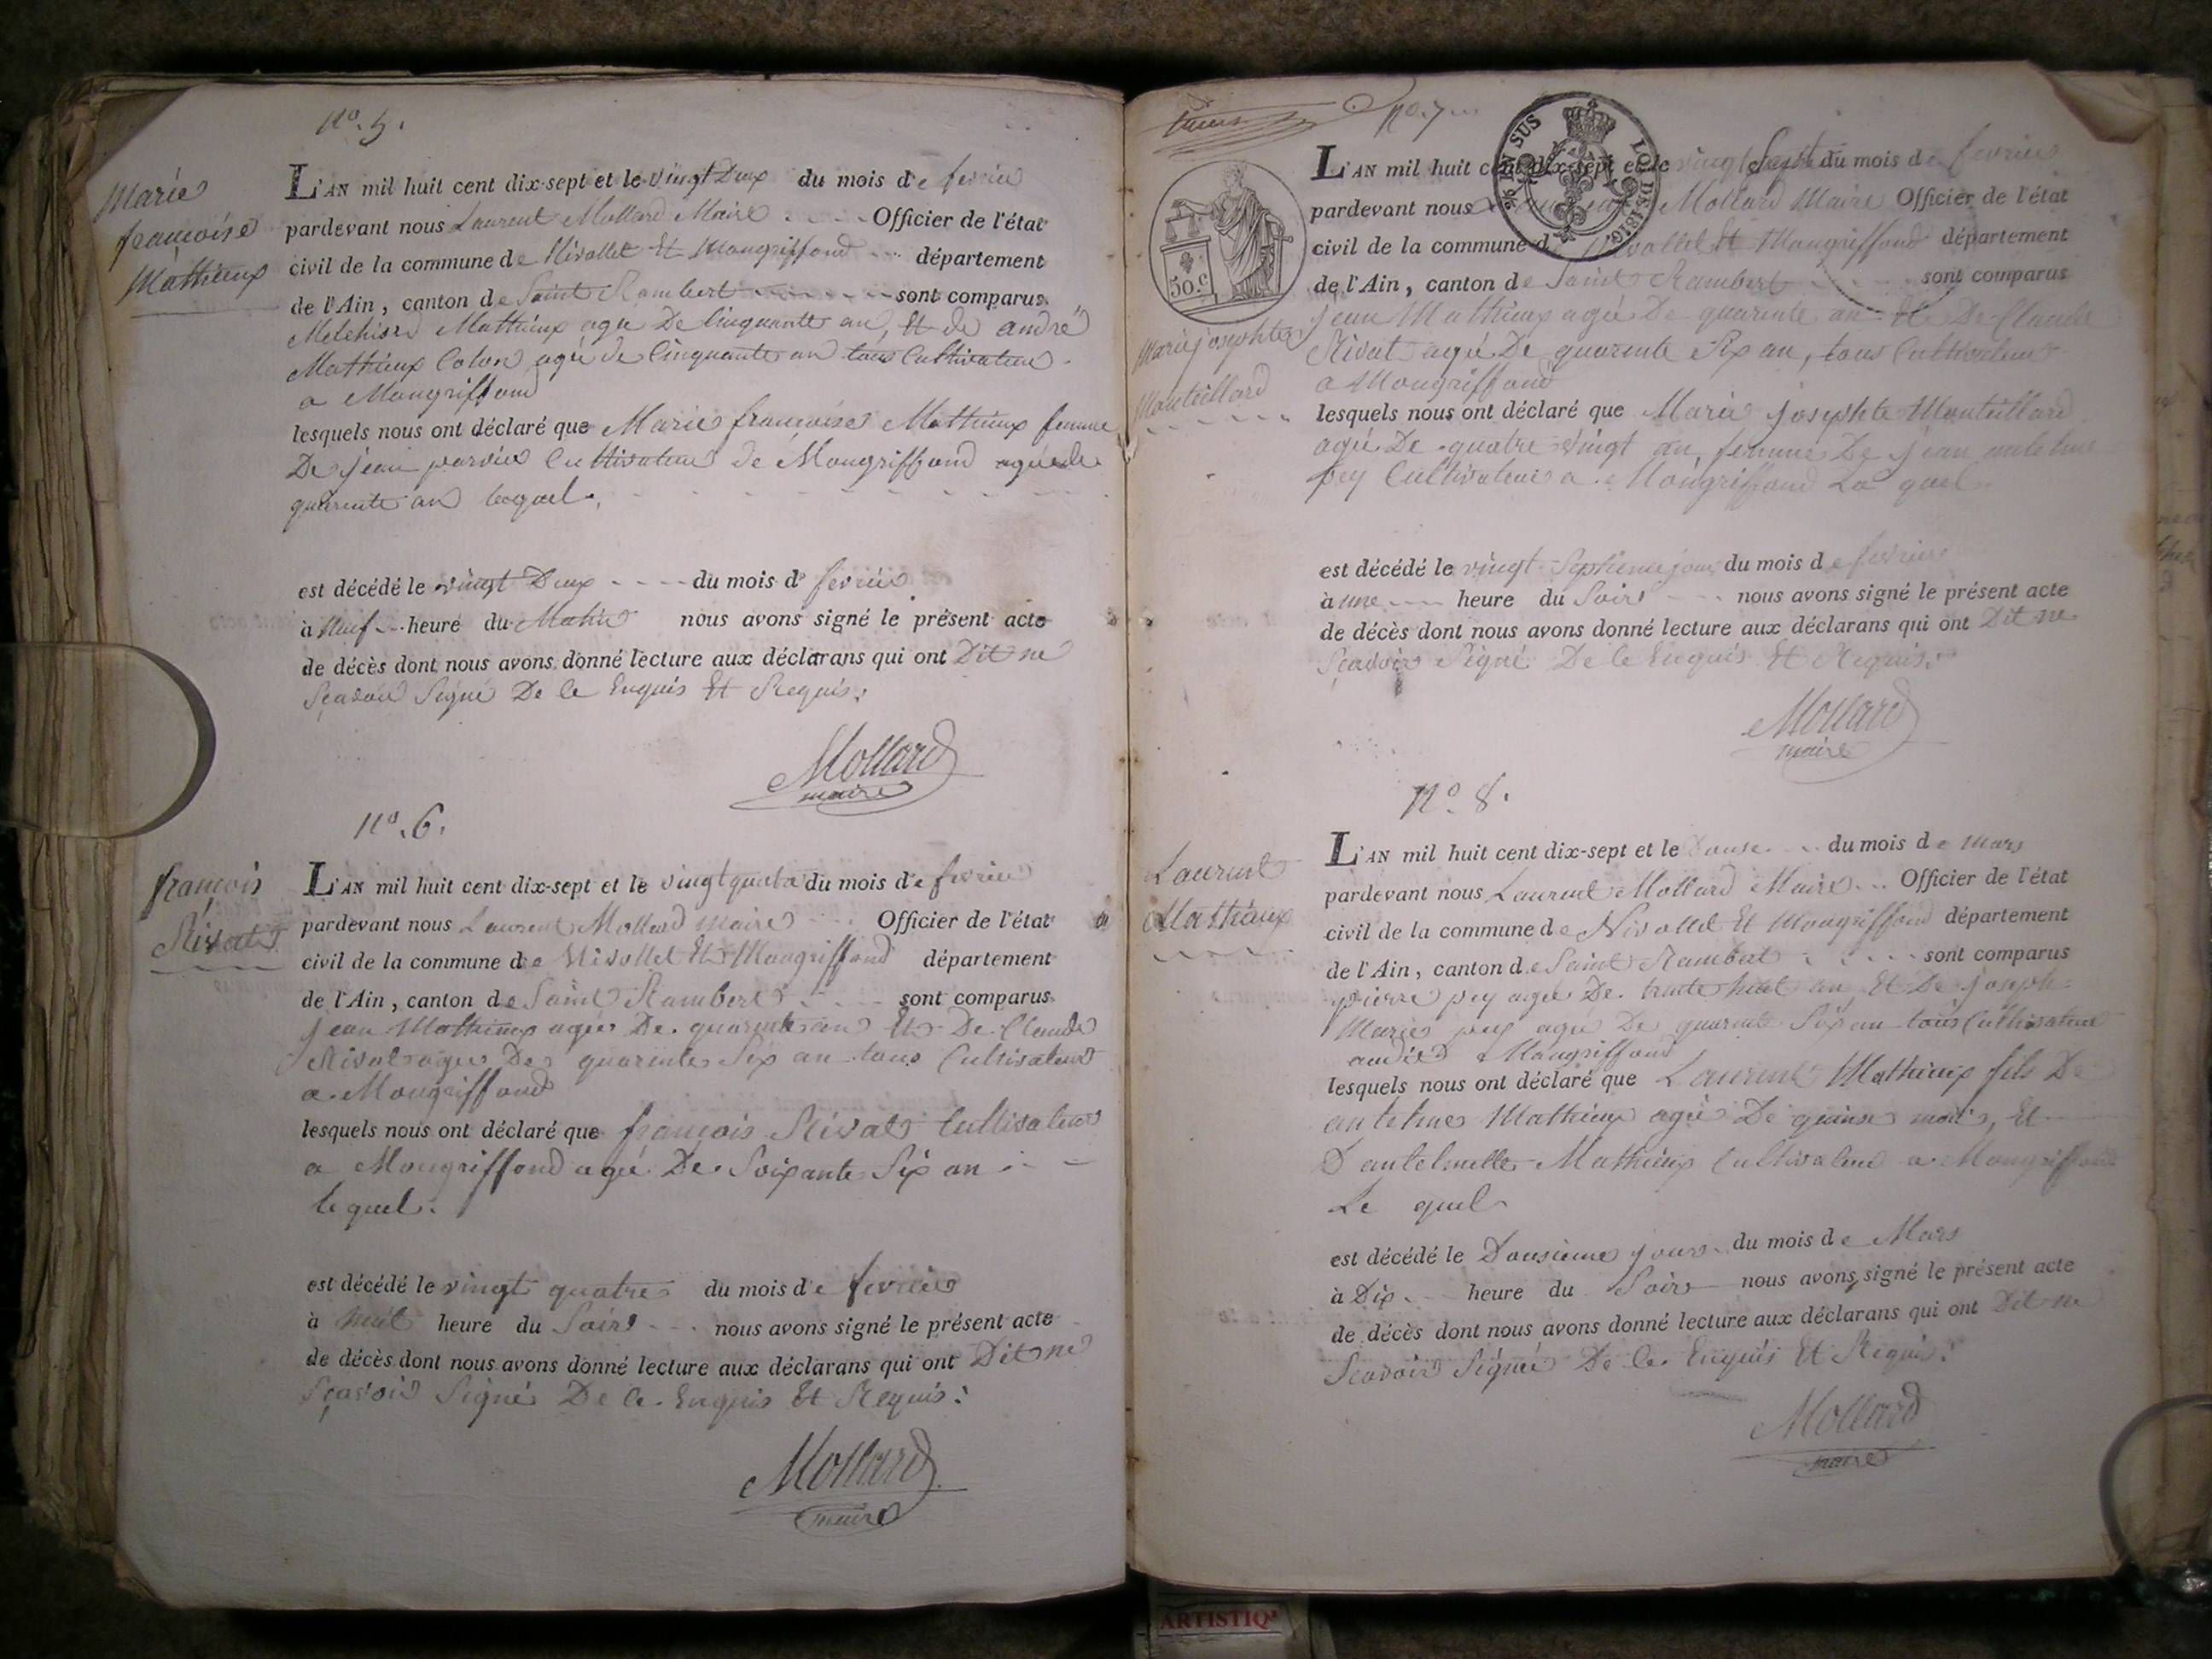 No. 5.
Marie
francoise
Mathieux
L'AN mil huit cent dix-sept et le vingt Deux du mois de fevrier
pardevant nous Laurent Mollard Maire Officier de l'état
civil de la commune de Nivollet Et Mongriffond département
de l'Ain, canton de Saint Rambert sont comparus
Melchior Mathieux agé De Cinquante an, Et de andré
Mathieux Colon agé de Cinquante an tous Cultivateur
a Mongriffond
lesquels nous ont déclaré que Marie francoise Mathieux femme
De jean parvie Cultivateur de Mongriffond agée de
quarente an lequel.
est décédé le vingt Deux du mois de fevrier
à Neuf heure du Matin nous avons signé le présent acte
de décès dont nous avons donné lecture aux déclarans qui ont Dit ne
Sçavoir Signé De ce Enquis Et Requis.
Mollard
maire
No. 6.
françois
Rivat
L'AN mil huit cent dix-sept et le vingt quatre du mois de fevrier
pardevant nous Laurent Mollard maire Officier de l'état
civil de la commune de Nivollet Et Mongriffond département
de l'Ain, canton de Saint Rambert sont comparus
jean Mathieux agée De quarente an Et De Claude
Rivat agée De quarente Six an tous Cultivateur
a Mongriffond
lesquels nous ont déclaré que françois Rivat Cultivateur
a Mongriffond agé De Soixante Six an
le quel.
est décédé le vingt quatre du mois de fevrier
à heure du Soir nous avons signé le présent acte
de décès dont nous avons donné lecture aux déclarans qui ont Dit ne
Sçavoir Signé De ce Enquis Et Requis.
Mollard
maire
No. 7
EN SUS LOI DE 1816
50.c
Marie josephte
Monteillard
L'AN mil huit cent dix-sept et le vingt Sept du mois de fevrier
pardevant nous Laurent Mollard Maire Officier de l'état
civil de la commune de Nivollet Et Mongriffond département
de l'Ain, canton de Saint Rambert sont comparus
jean Mathieux agée De quarente an Et De Claude
Rivat agé De quarente Six an, tous Cultivateur
a Mongriffond
lesquels nous ont déclaré que Marie josephte Monteillard
agée De quatre vingt an, femme De jean antelme
pey Cultivateur a Mongriffond La quel
est décédé le vingt Septieme jour du mois de fevrier
à une heure du Soir nous avons signé le présent acte
de décès dont nous avons donné lecture aux déclarans qui ont Dit ne
Sçavoir Signé De ce Enquis Et Requis.
Mollard
maire
No. 8.
Laurent
Mathieux
L'AN mil huit cent dix-sept et le Douse du mois de mars
pardevant nous Laurent Mollard Maire Officier de l'état
civil de la commune de Nivollet Et Mongriffond département
de l'Ain, canton de Saint Rambert sont comparus
pierre pey agée De trente huit an, Et De joseph
Marie pey agé De quarente Six an tous Cultivateur
audit Mongriffond
lesquels nous ont déclaré que Laurent Mathieux fils De
antelme Mathieux agé De quinse mois, Et
D'antelmette Mathieux Cultivateur a Mongriffond
Le quel
est décédé le Dousieme jour du mois de Mars
à Dix heure du Soir nous avons signé le présent acte
de décès dont nous avons donné lecture aux déclarans qui ont Dit ne
Scavoir Signé De ce Enquis Et Requis.
Mollard
maire
ARTISTIQ